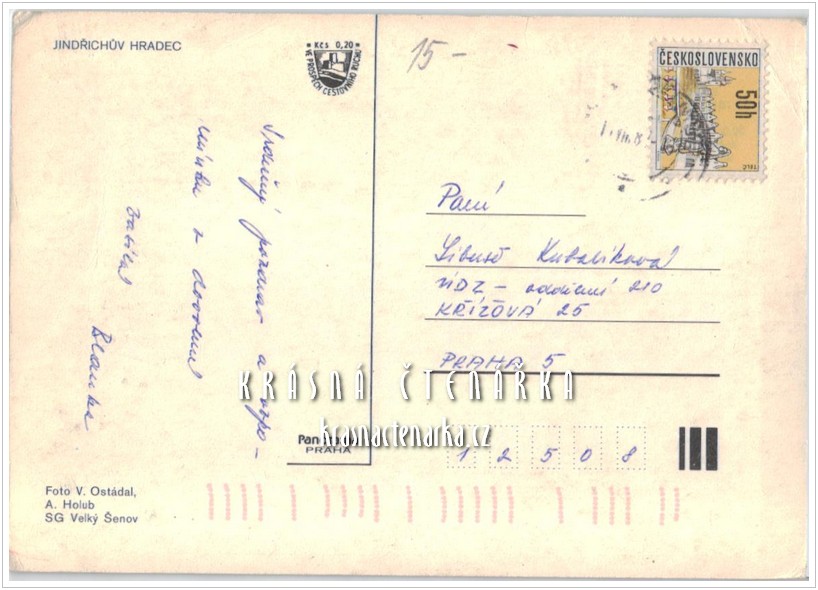 JINDŘICHŮV HRADEC
Kčs 0,20
VE PROSPĚCH CESTOVNÍHO RUCHU
15-
ČESKOSLOVENSKO
50h
TELČ
Srdečný pozdrav a vzpo-
mínku z dovolené
zasílá
Blanka
Paní
Libuše Kubalíková
oddělení 210
KŘÍŽOVÁ 25
PRAHA 5
KRÁSNÁ ČTENÁŘKA
krasnactenarka.cz
PRAHA
12508
Foto V. Ostádal,
A. Holub
SG Velký Šenov